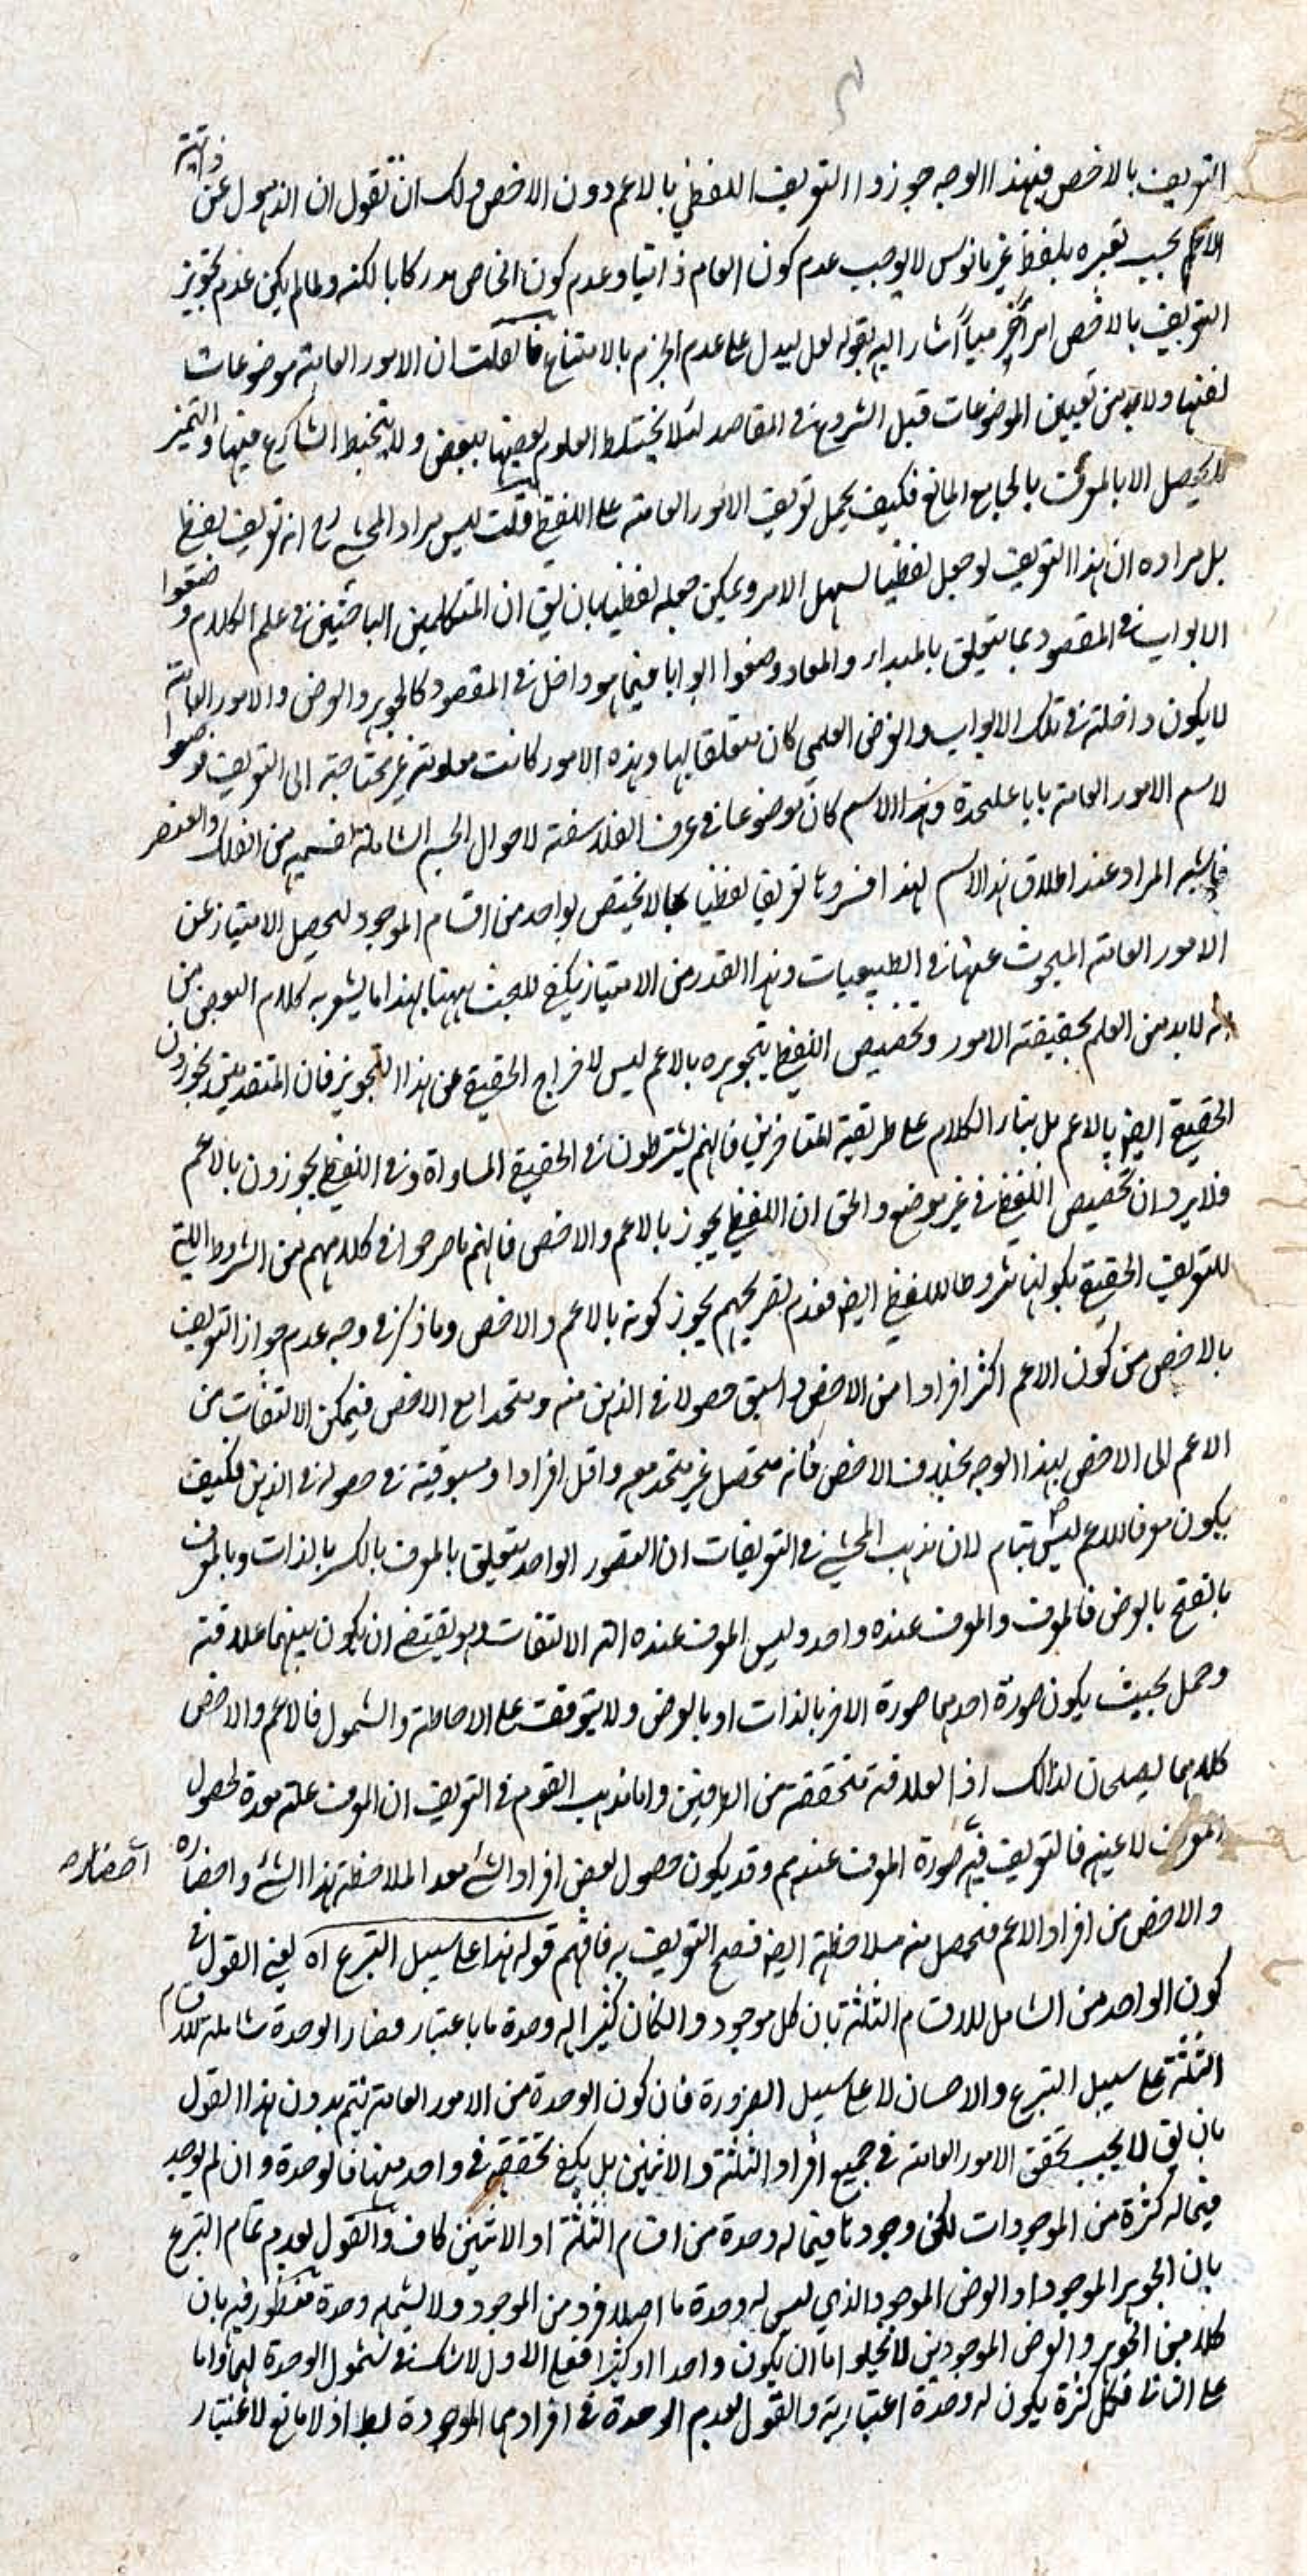 التعريف بالاخص فبهذا الوجه جوزوا التعريف اللفظي بالاعم دون الاخص ولك ان تقول ان الذهول عن ذاتية
الاعم بحسب تعبيره بلفظ غير مانوس لا يوجب عدم كون العام ذاتيا وعدم كون الخاص مدركا بالكنه ولما لم يكن عدم تجويز
التعريف بالاخص امرا آخر مبيا اشار اليه بقوله لعل ليدل على عدم الجزم بالامتناع فان قلت ان الامور العامة موضوعات
لفنها ولا بد من تعيين الموضوعات قبل الشروع في المقاصد لئلا يختلط العلوم بعضها ببعض ولا يتخبط الشارع فيها والتميز
لا يحصل الا بالمعرف بالجامع المانع فكيف يحمل تعريف الامور العامة على اللفظي قلت ليس مراد المحشي رح انه تعريف لفظي
بل مراده ان هذا التعريف لو جعل لفظيا لسهل الامر ويمكن جعله لفظيا بان يق ان المتكلمين الباحثين في علم الكلام وضعوا
الابواب في المقصود بما يتعلق بالمبدا والمعاد وضعوا ابوابا فيما هو داخل في المقصود كالجوهر والعرض والامور العامة
لا يكون داخلة في تلك الابواب والغرض العلمي كان متعلقا بها وهذه الامور كانت معلومة غير محتاجة الى التعريف فوضعوا
لاسم الامور العامة بابا عليحدة وهذا الاسم كان موضوعا في عرف الفلاسفة لاحوال الجسم الشاملة لقسميه من الفلك والعنصر
فاشتبه المراد عند اطلاق هذا الاسم لهذا فسروها تعريفا لفظيا بما لا يختص بواحد من اقسام الموجود ليحصل الامتياز عن
الامور العامة المبحوث عنها في الطبيعيات وهذا القدر من الامتياز يكفي للبحث ههنا بهذا ما يشعر به كلام البعض من
انه لا بد من العلم بحقيقة الامور وتخصيص اللفظي بتجويزه بالاعم ليس لاخراج الحقيقي عن هذا التجويز فان المتقدمين يجوزون
الحقيقي ايضا بالاعم بل بناء الكلام على طريقة المتاخرين فانهم يشترطون في الحقيقي المساواة وفي اللفظي يجوزون بالاعم
فلا يرد ان تخصيص اللفظي في غير موضع والحق ان اللفظي يجوز بالاعم والاخص فانهم ما صرحوا في كلامهم من الشروط اللتي
للتعريف الحقيقي بكونها شروطا للفظي ايضا فعدم تصريحهم يجوز كونه بالاعم والاخص وما ذكر في وجه عدم جواز التعريف
بالاخص من كون الاعم اكثر افرادا من الاخص واسبق حصولا في الذهن منه ومتحدا مع الاخص فيمكن الالتفات من
الاعم الى الاخص بهذا الوجه بخلاف الاخص فانه متحصل غير متحد معه واقل افرادا ومسبوقية في حصوله في الذهن فكيف
يكون معرفا للاعم ليس بتمام لان مذهب المحشي في التعريفات ان التصور الواحد يتعلق بالمعرف بالكسر بالذات وبالمعرف
بالفتح بالعرض فالمعرف والمعرف عنده واحد وليس المعرف عنده الة الالتفات وهو يقتضي ان يكون بينهما علاقة
وحمل بحيث يكون صورة احدهما صورة الاخر بالذات او بالعرض ولا يتوقف على الاحاطة والشمول فالاعم والاخص
كلاهما يصلحان لذالك اذ العلاقة متحققة من الطرفين واما مذهب القوم في التعريف ان المعرف علة معدة لحصول
المعرف لا عينه فالتعريف فيه صورة المعرف عندهم وقد يكون حصول بعض افراد الشئ معدا لملاحظة هذا الشئ واحضاره
احضاره
والاخص من افراد الاعم فتحصل منه ملاحظته ايضا فصح التعريف به فافهم قوله هذا على سبيل التبرع اه يعني القول في
كون الواحد من الشامل للاقسام الثلثة بان كل موجود والكان كثيرا له وحدة ما باعتبار فصار الوحدة شاملة للاقسام
الثلثة على سبيل التبرع والاحسان لا على سبيل الضرورة فان كون الوحدة من الامور العامة يتم بدون هذا القول
بان يق لا يجب تحقق الامور العامة في جميع افراد الثلثة والاثنين بل يكفي تحققه في واحد منها فالوحدة وان لم يوجد
فيما له كثرة من الموجودات لكن وجودها فيما له وحدة من اقسام الثلثة او الاثنين كاف والقول بعدم تمام التبرع
بان الجوهر الموجود او العرض الموجود الذي ليس له وحدة ما اصلا فرد من الموجود ولا يشمله وحدة منظور فيه بان
كلا من الجوهر والعرض الموجودين لا يخلو اما ان يكون واحدا او كثيرا فعلى الاول لا شك في شمول الوحدة لهما واما
على الثاني فكل كثرة يكون له وحدة اعتبارية والقول بعدم الوحدة في افرادهما الموجودة بط اذ لا مانع لاعتبار